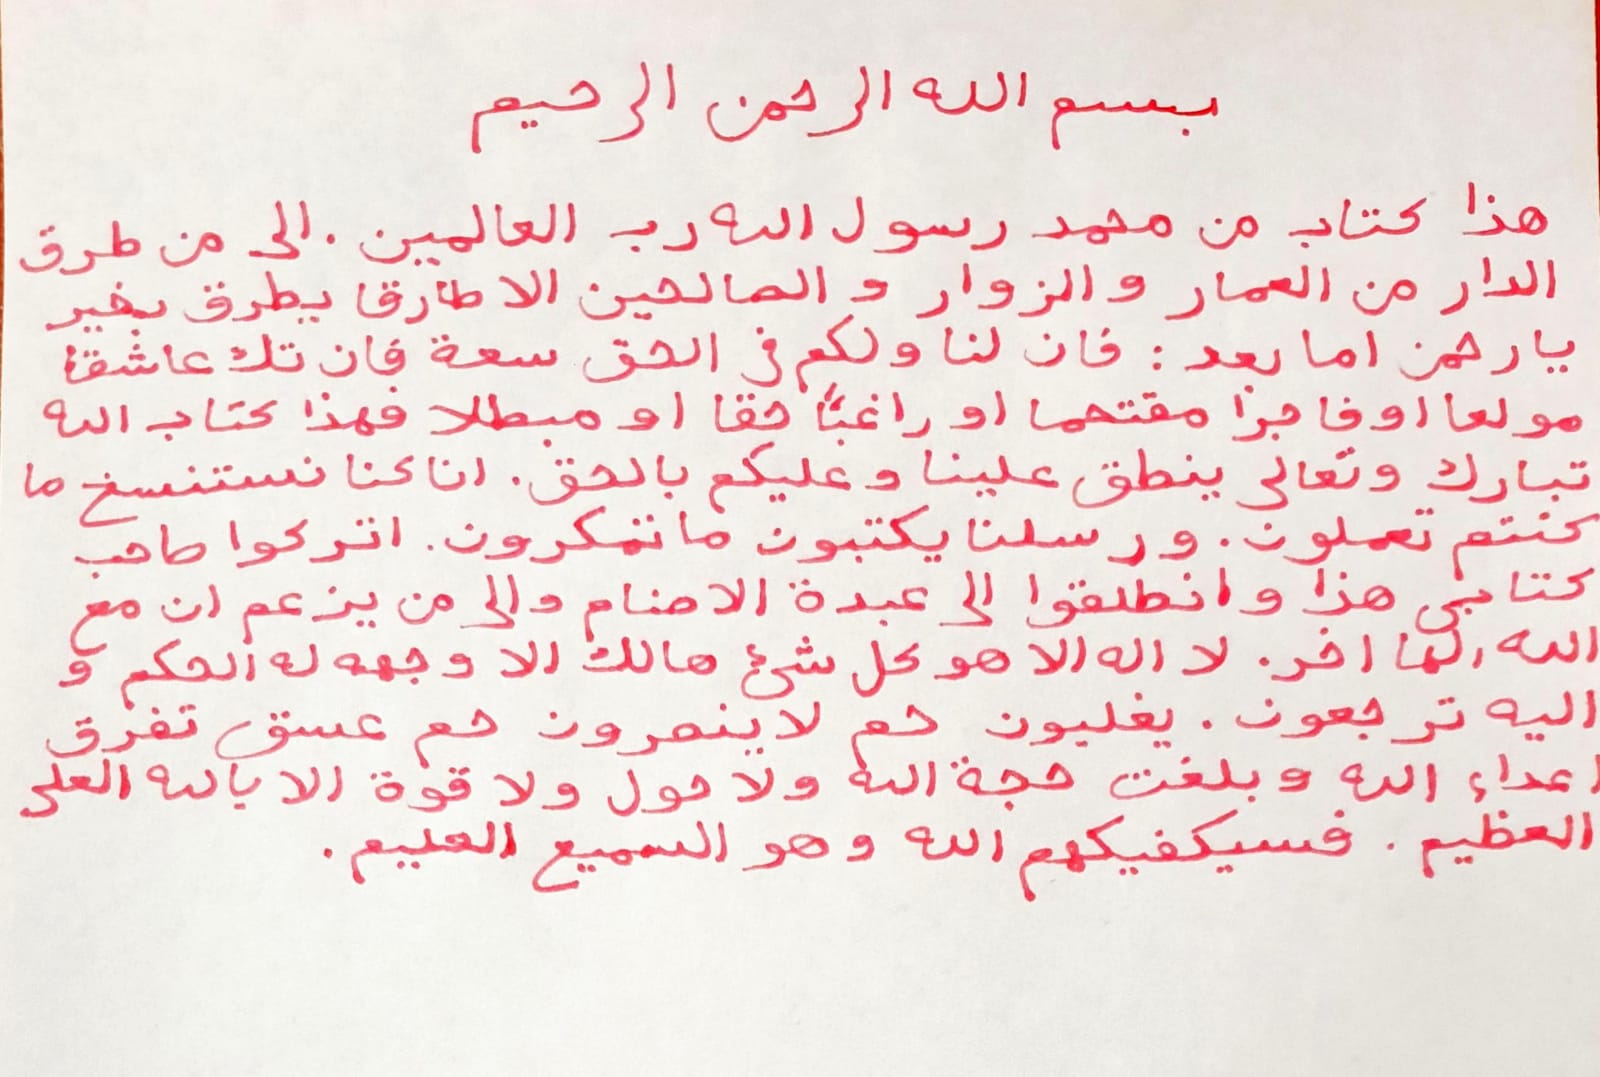 بسم الله الرحمن الرحيم
هذا كتاب من محمد رسول الله رب العالمين . الى من طرق
الدار من العمار والزوار و الصالحين الا طارقا يطرق بخير
يا رحمن اما بعد : فان لنا ولكم في الحق سعة فان تك عاشقا
مولعا او فاجرا مقتحما او راغبًا حقا او مبطلا فهذا كتاب الله
تبارك وتعالى ينطق علينا وعليكم بالحق . انا كنا نستنسخ ما
كنتم تعملون . ورسلنا يكتبون ما تمكرون . اتركوا صاحب
كتابي هذا وانطلقوا الى عبدة الاصنام والى من يزعم ان مع
الله الها اخر . لا اله الا هو كل شئ هالك الا وجهه له الحكم و
اليه ترجعون . يغلبون حم لا ينصرون حم عسق تفرق
اعداء الله وبلغت حجة الله ولا حول ولا قوة الا بالله العلي
العظيم . فسيكفيكهم الله وهو السميع العليم .